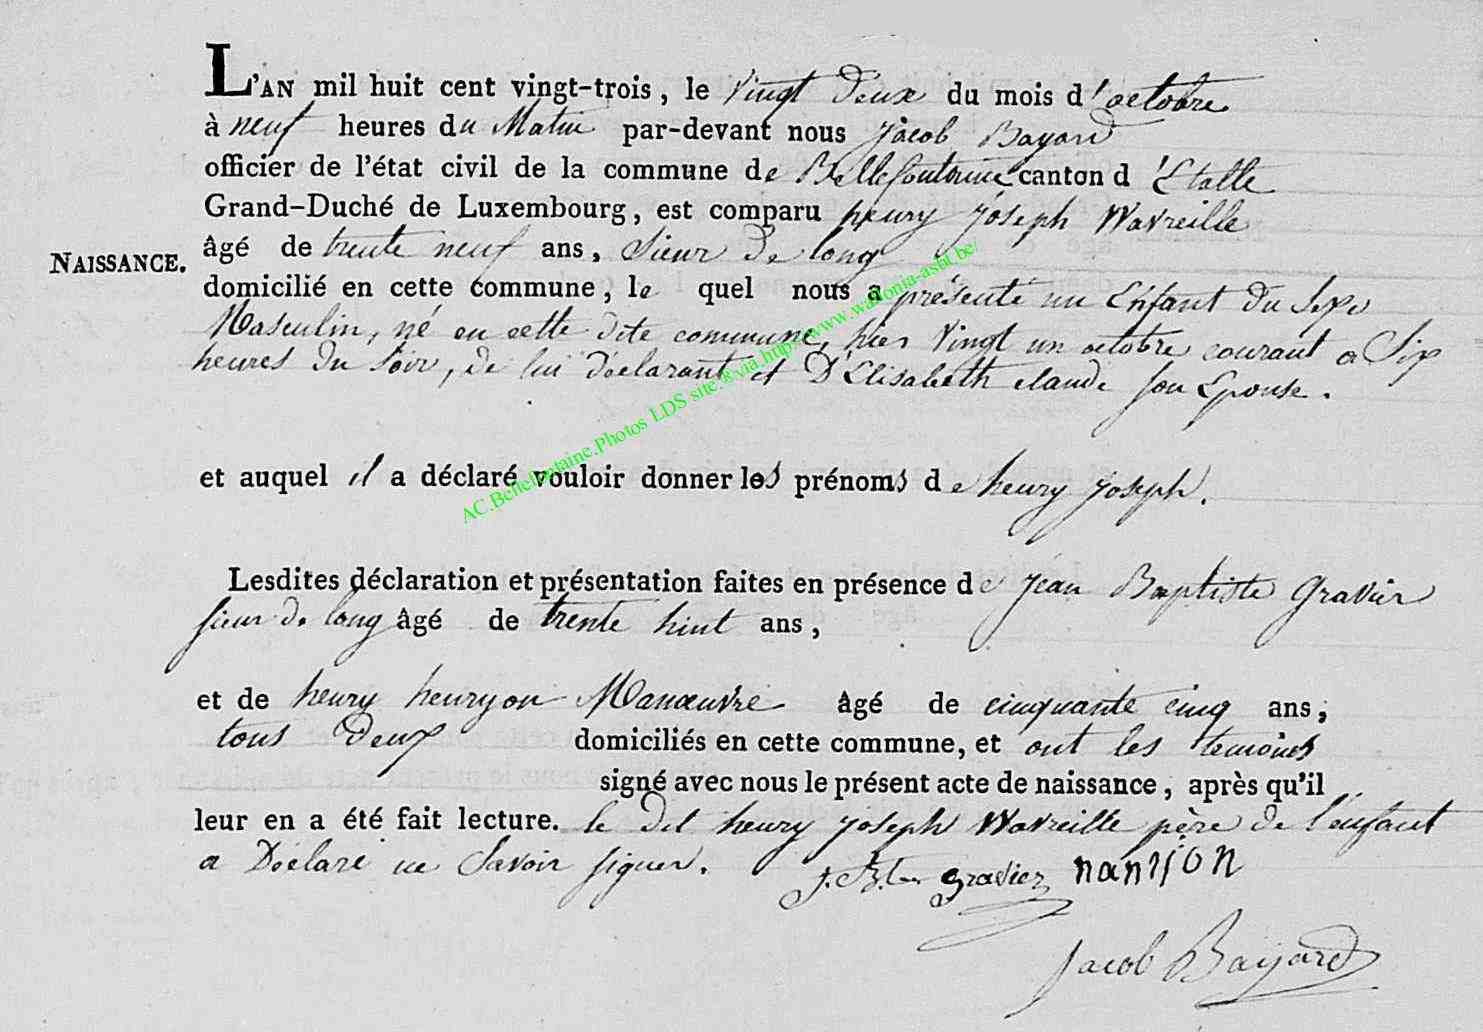 L'AN mil huit cent vingt-trois, le vingt deux du mois d'octobre
à neuf heures du Matin par-devant nous Jacob Bayard
officier de l'état civil de la commune de Bellefontaine canton d'Etalle
Grand-Duché de Luxembourg, est comparu henry joseph Wavreille
NAISSANCE.
âgé de trente neuf ans, sieur de long
domicilié en cette commune, le quel nous a présenté un Enfant du sexe
Masculin, né en cette dite commune, hier vingt un octobre courant a Six
heures du soir, de lui déclarant et D'Elisabeth claude son Epouse.
et auquel il a déclaré vouloir donner les prénoms de henry joseph.
Lesdites déclaration et présentation faites en présence de jean Baptiste Gravier
sieur de long âgé de trente huit ans,
et de henry henryon Manœuvre âgé de cinquante cinq ans,
tous deux domiciliés en cette commune, et ont les temoins
signé avec nous le présent acte de naissance, après qu'il
leur en a été fait lecture. le dit henry joseph Wavreille père de l'enfant
a Déclaré ne Savoir signer. J. Bte gravier
Jacob Bayard
AC.Bellefontaine.Photos LDS site.®via.http://www.wallonia-asbl.be/